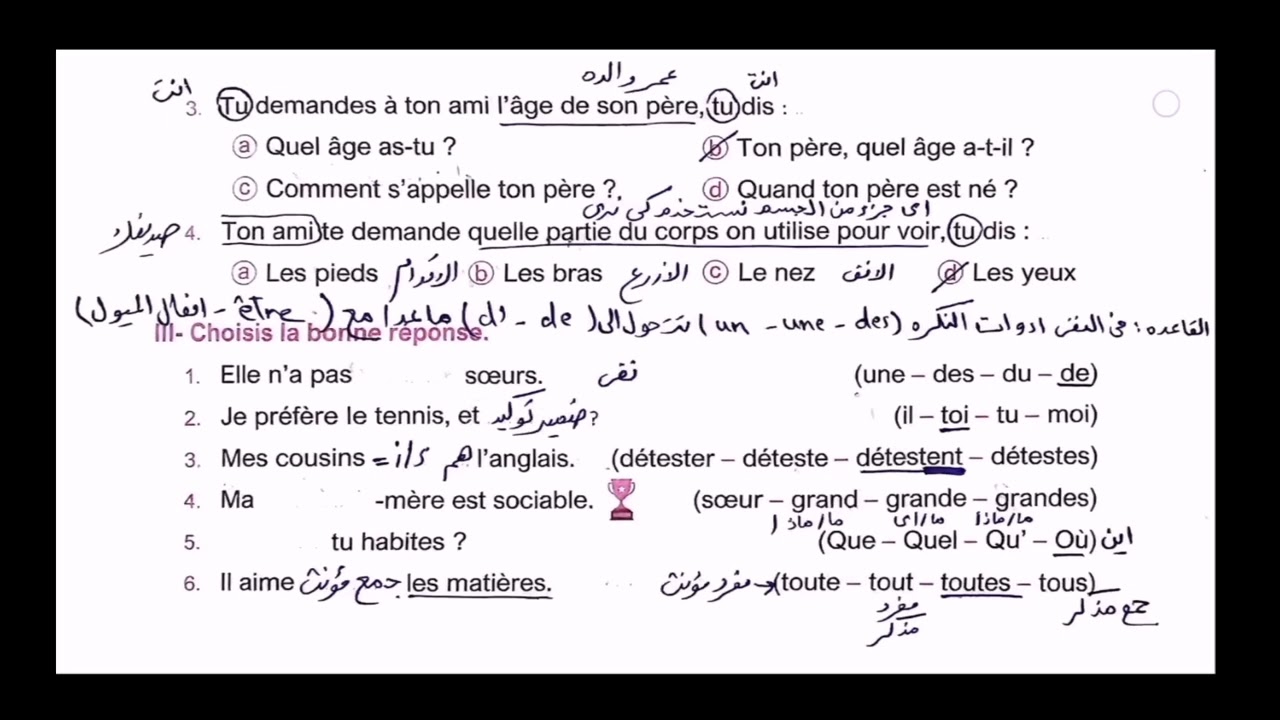 عمر والده
انت
انت
3. Tu demandes à ton ami l'âge de son père, tu dis :
a Quel âge as-tu ? b Ton père, quel âge a-t-il ?
c Comment s'appelle ton père ? d Quand ton père est né ?
اى جزء من الجسم نستخدم كى نرى
صديقك 4. Ton ami te demande quelle partie du corps on utilise pour voir, tu dis :
a Les pieds الاقدام b Les bras الازرع c Le nez الانف d Les yeux
القاعده : فى النفى ادوات النكره (un - une - des) تتحول الى (de - d') ماعدا مع (être - افعال الميول)
III- Choisis la bonne réponse.
1. Elle n'a pas sœurs. نفى (une – des – du – de)
2. Je préfère le tennis, et ضمير توكيد ? (il – toi – tu – moi)
3. Mes cousins = هم l'anglais. (détester – déteste – détestent – détestes)
4. Ma -mère est sociable. (sœur – grand – grande – grandes)
ما/ماذا ما/اى ما/ماذا
5. tu habites ? (Que – Quel – Qu' – Où) اين
6. Il aime جمع مؤنث les matières. مفرد مؤنث (toute – tout – toutes – tous)
مفرد مذكر
جمع مذكر